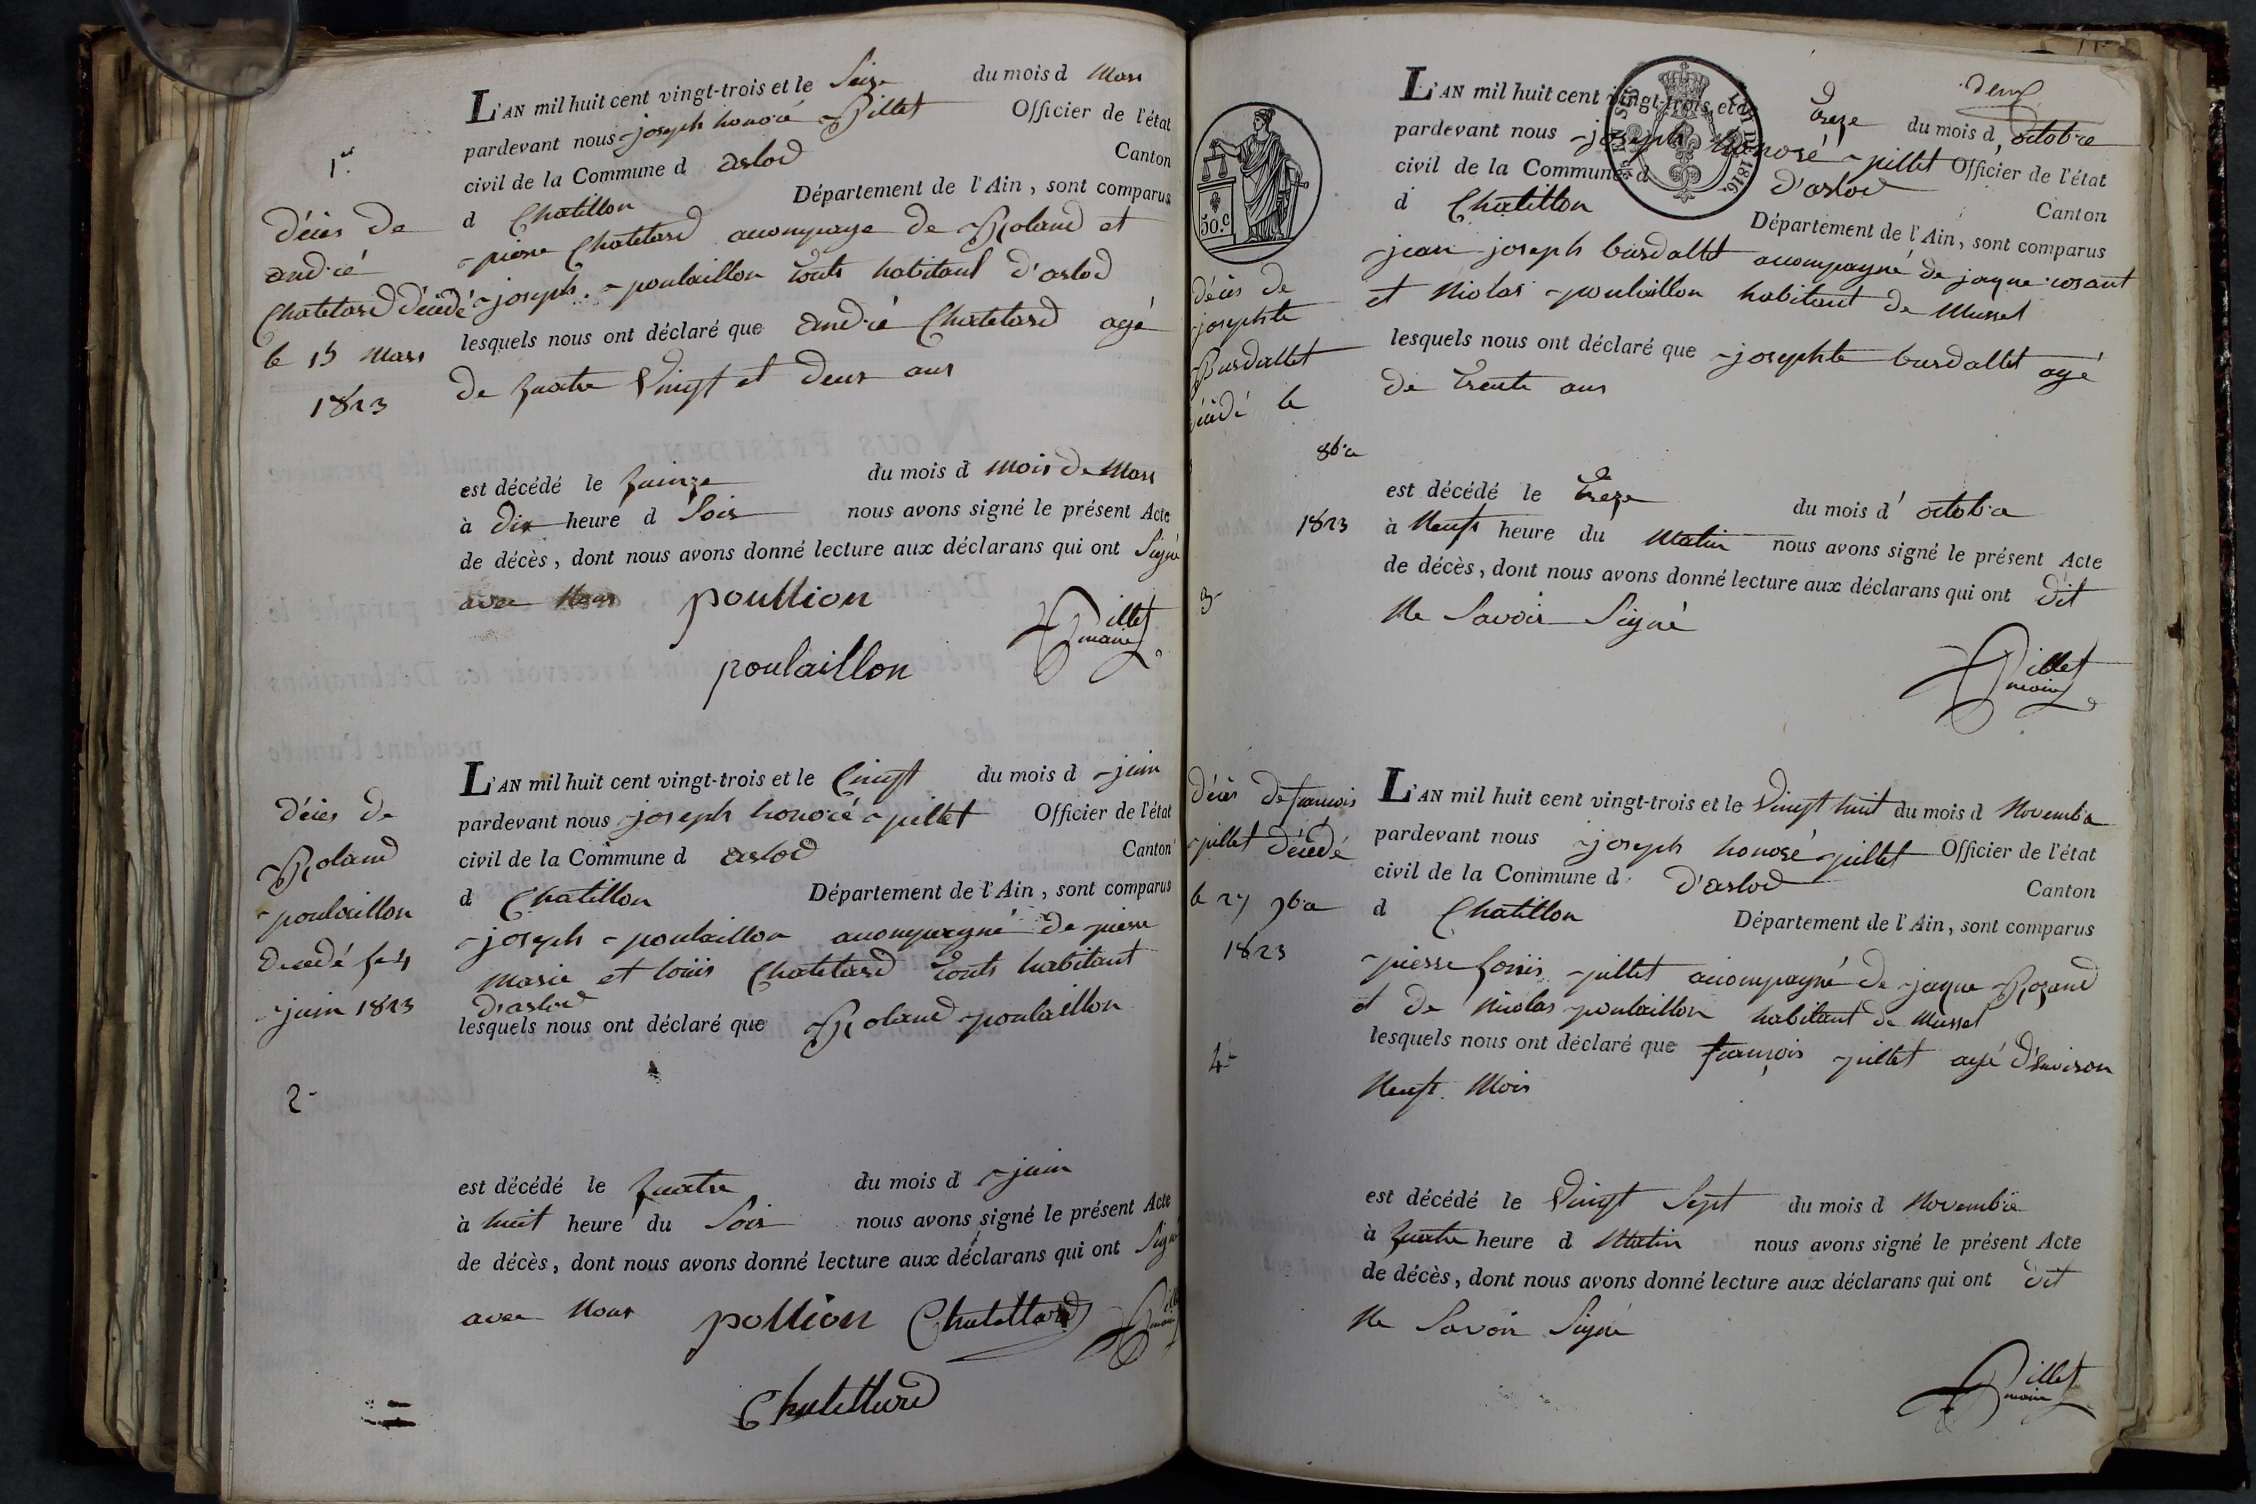 1er
Décès de
andré
Chatelard décédé
le 15 Mars
1823
L'AN mil huit cent vingt-trois et le Seize du mois d Mars
pardevant nous joseph honoré Pillet Officier de l'état
civil de la Commune d arlod Canton
d Chatillon Département de l'Ain, sont comparus
pierre Chatelard acompagé de Roland et
joseph poulaillon touts habitant d'arlod
lesquels nous ont déclaré que andré Chatelard agé
de quatre Vingt et deux ans
est décédé le quinze du mois d mois de Mars
à dix heure d Soir nous avons signé le présent Acte
de décès, dont nous avons donné lecture aux déclarans qui ont Signé
avec Nous poullion Pillet
maire
poulaillon
Décès de
Roland
poulaillon
Decedé le 4
juin 1823
2
L'AN mil huit cent vingt-trois et le Cinq du mois d juin
pardevant nous joseph honoré pillet Officier de l'état
civil de la Commune d arlod Canton
d Chatillon Département de l'Ain, sont comparus
joseph poulaillon acompagné de pierre
marie et louis Chatelard touts habitant
d'arlod
lesquels nous ont déclaré que Roland poulaillon
est décédé le quatre du mois d juin
à huit heure du Soir nous avons signé le présent Acte
de décès, dont nous avons donné lecture aux déclarans qui ont Signé
avec Nous pollion Chatellard Pillet
maire
Chatellard
50.c
LOI DE 1816.
deux
décès de
josephte
Burdallet
décédé le
8bre
1823
3
L'AN mil huit cent vingt-trois, et le treze du mois d octobre
pardevant nous joseph honoré pillet Officier de l'état
civil de la Commune d d'arlod Canton
d Chatillon Département de l'Ain, sont comparus
jean joseph burdallet acompagné de jaque rosant
et Nicolas poulaillon habitant de Mussel
lesquels nous ont déclaré que josephte burdallet agé
de trente ans
est décédé le treze du mois d' octobre
à Neufs heure du Matin nous avons signé le présent Acte
de décès, dont nous avons donné lecture aux déclarans qui ont dit
Ne Savoir Signé
Pillet
maire
décès de francois
pillet décédé
le 27 9bre
1823
4
L'AN mil huit cent vingt-trois et le Vingt huit du mois d Novembre
pardevant nous joseph honoré pillet Officier de l'état
civil de la Commune d d'arlod Canton
d Chatillon Département de l'Ain, sont comparus
pierre louis pillet acompagné de jaque Rozand
et de Nicolas poulaillon habitant de Mussel
lesquels nous ont déclaré que françois pillet agé d'environ
Neufs Mois
est décédé le Vingt Sept du mois d Novembre
à quatre heure d Matin nous avons signé le présent Acte
de décès, dont nous avons donné lecture aux déclarans qui ont dit
Ne Savoir Signé
Pillet
maire